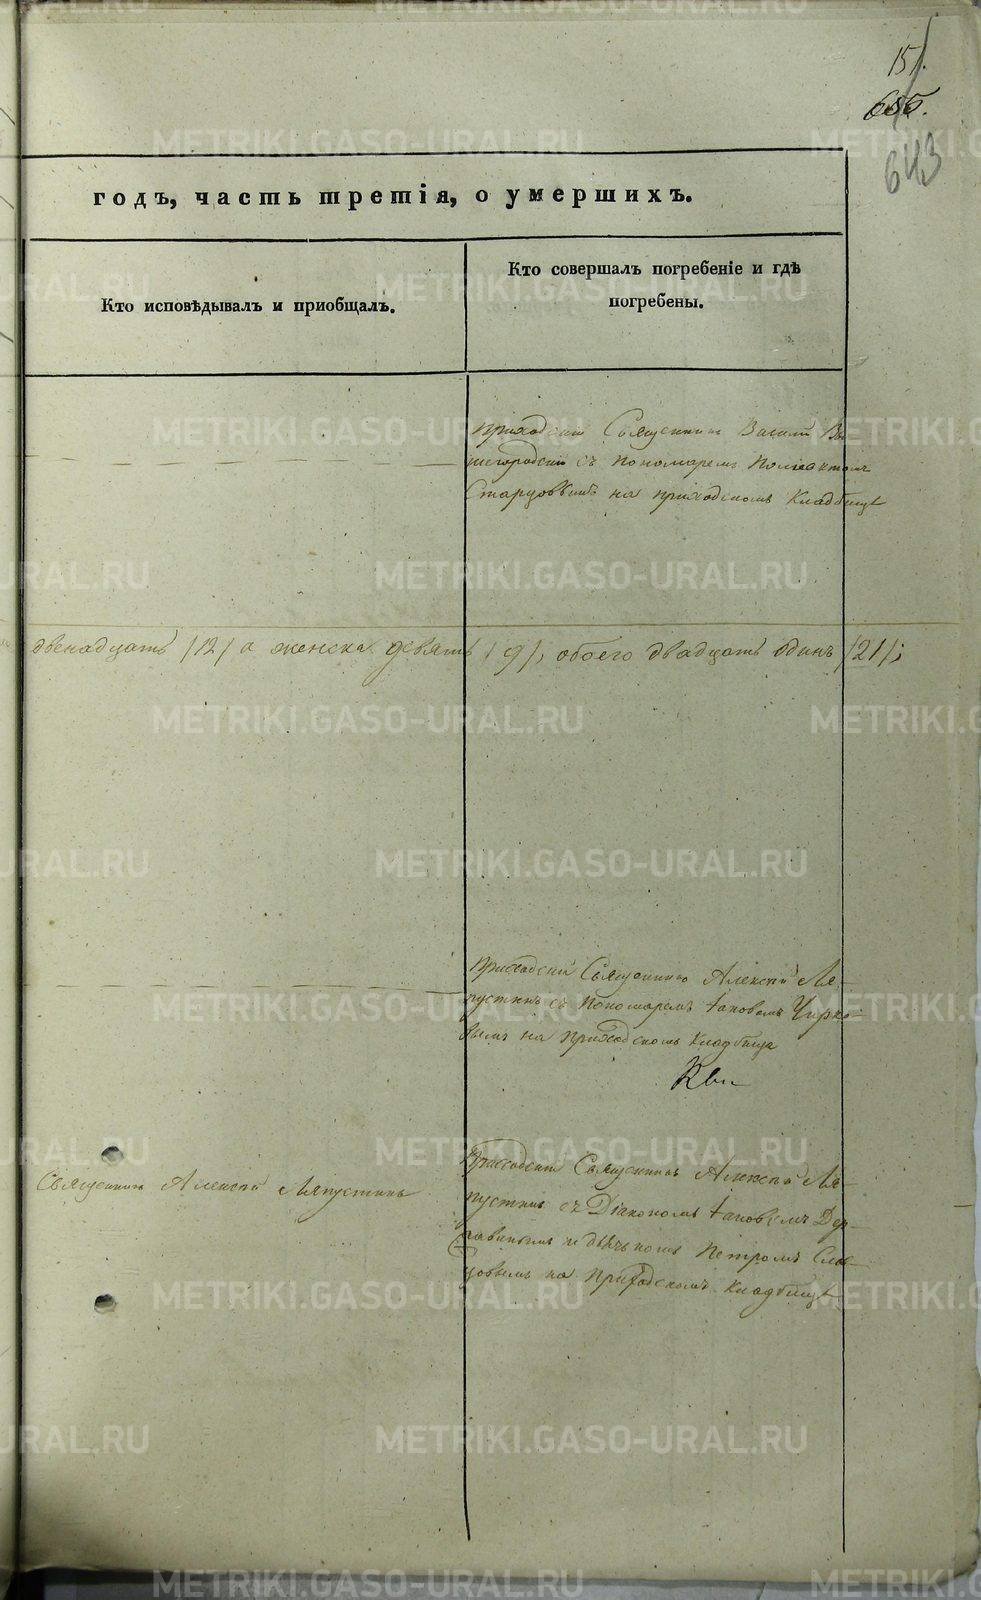 151.
655.
643
годъ, часть третія, о умершихъ.
Кто исповѣдывалъ и приобщалъ.
Кто совершалъ погребеніе и гдѣ
погребены.
Приходскій Священникъ Василій Вы-
шегородскій съ Пономаремъ Поліевктомъ
Старцовымъ на приходскомъ Кладбищѣ
двенадцать /12/ а женска девять /9/, обоего двадцать одинъ /21/;
Приходскій Священникъ Алексѣй Ля-
пустинъ съ Пономаремъ Іаковомъ Чирко-
вымъ на приходскомъ кладбище
Священникъ Алексѣй Ляпустинъ
Приходскій Священникъ Алексѣй Ля-
пустинъ съ Діакономъ Іаковомъ Дер-
жавинымъ и дьячкомъ Петромъ Слов-
цовымъ на приходскомъ кладбищѣ
METRIKI.GASO-URAL.RU